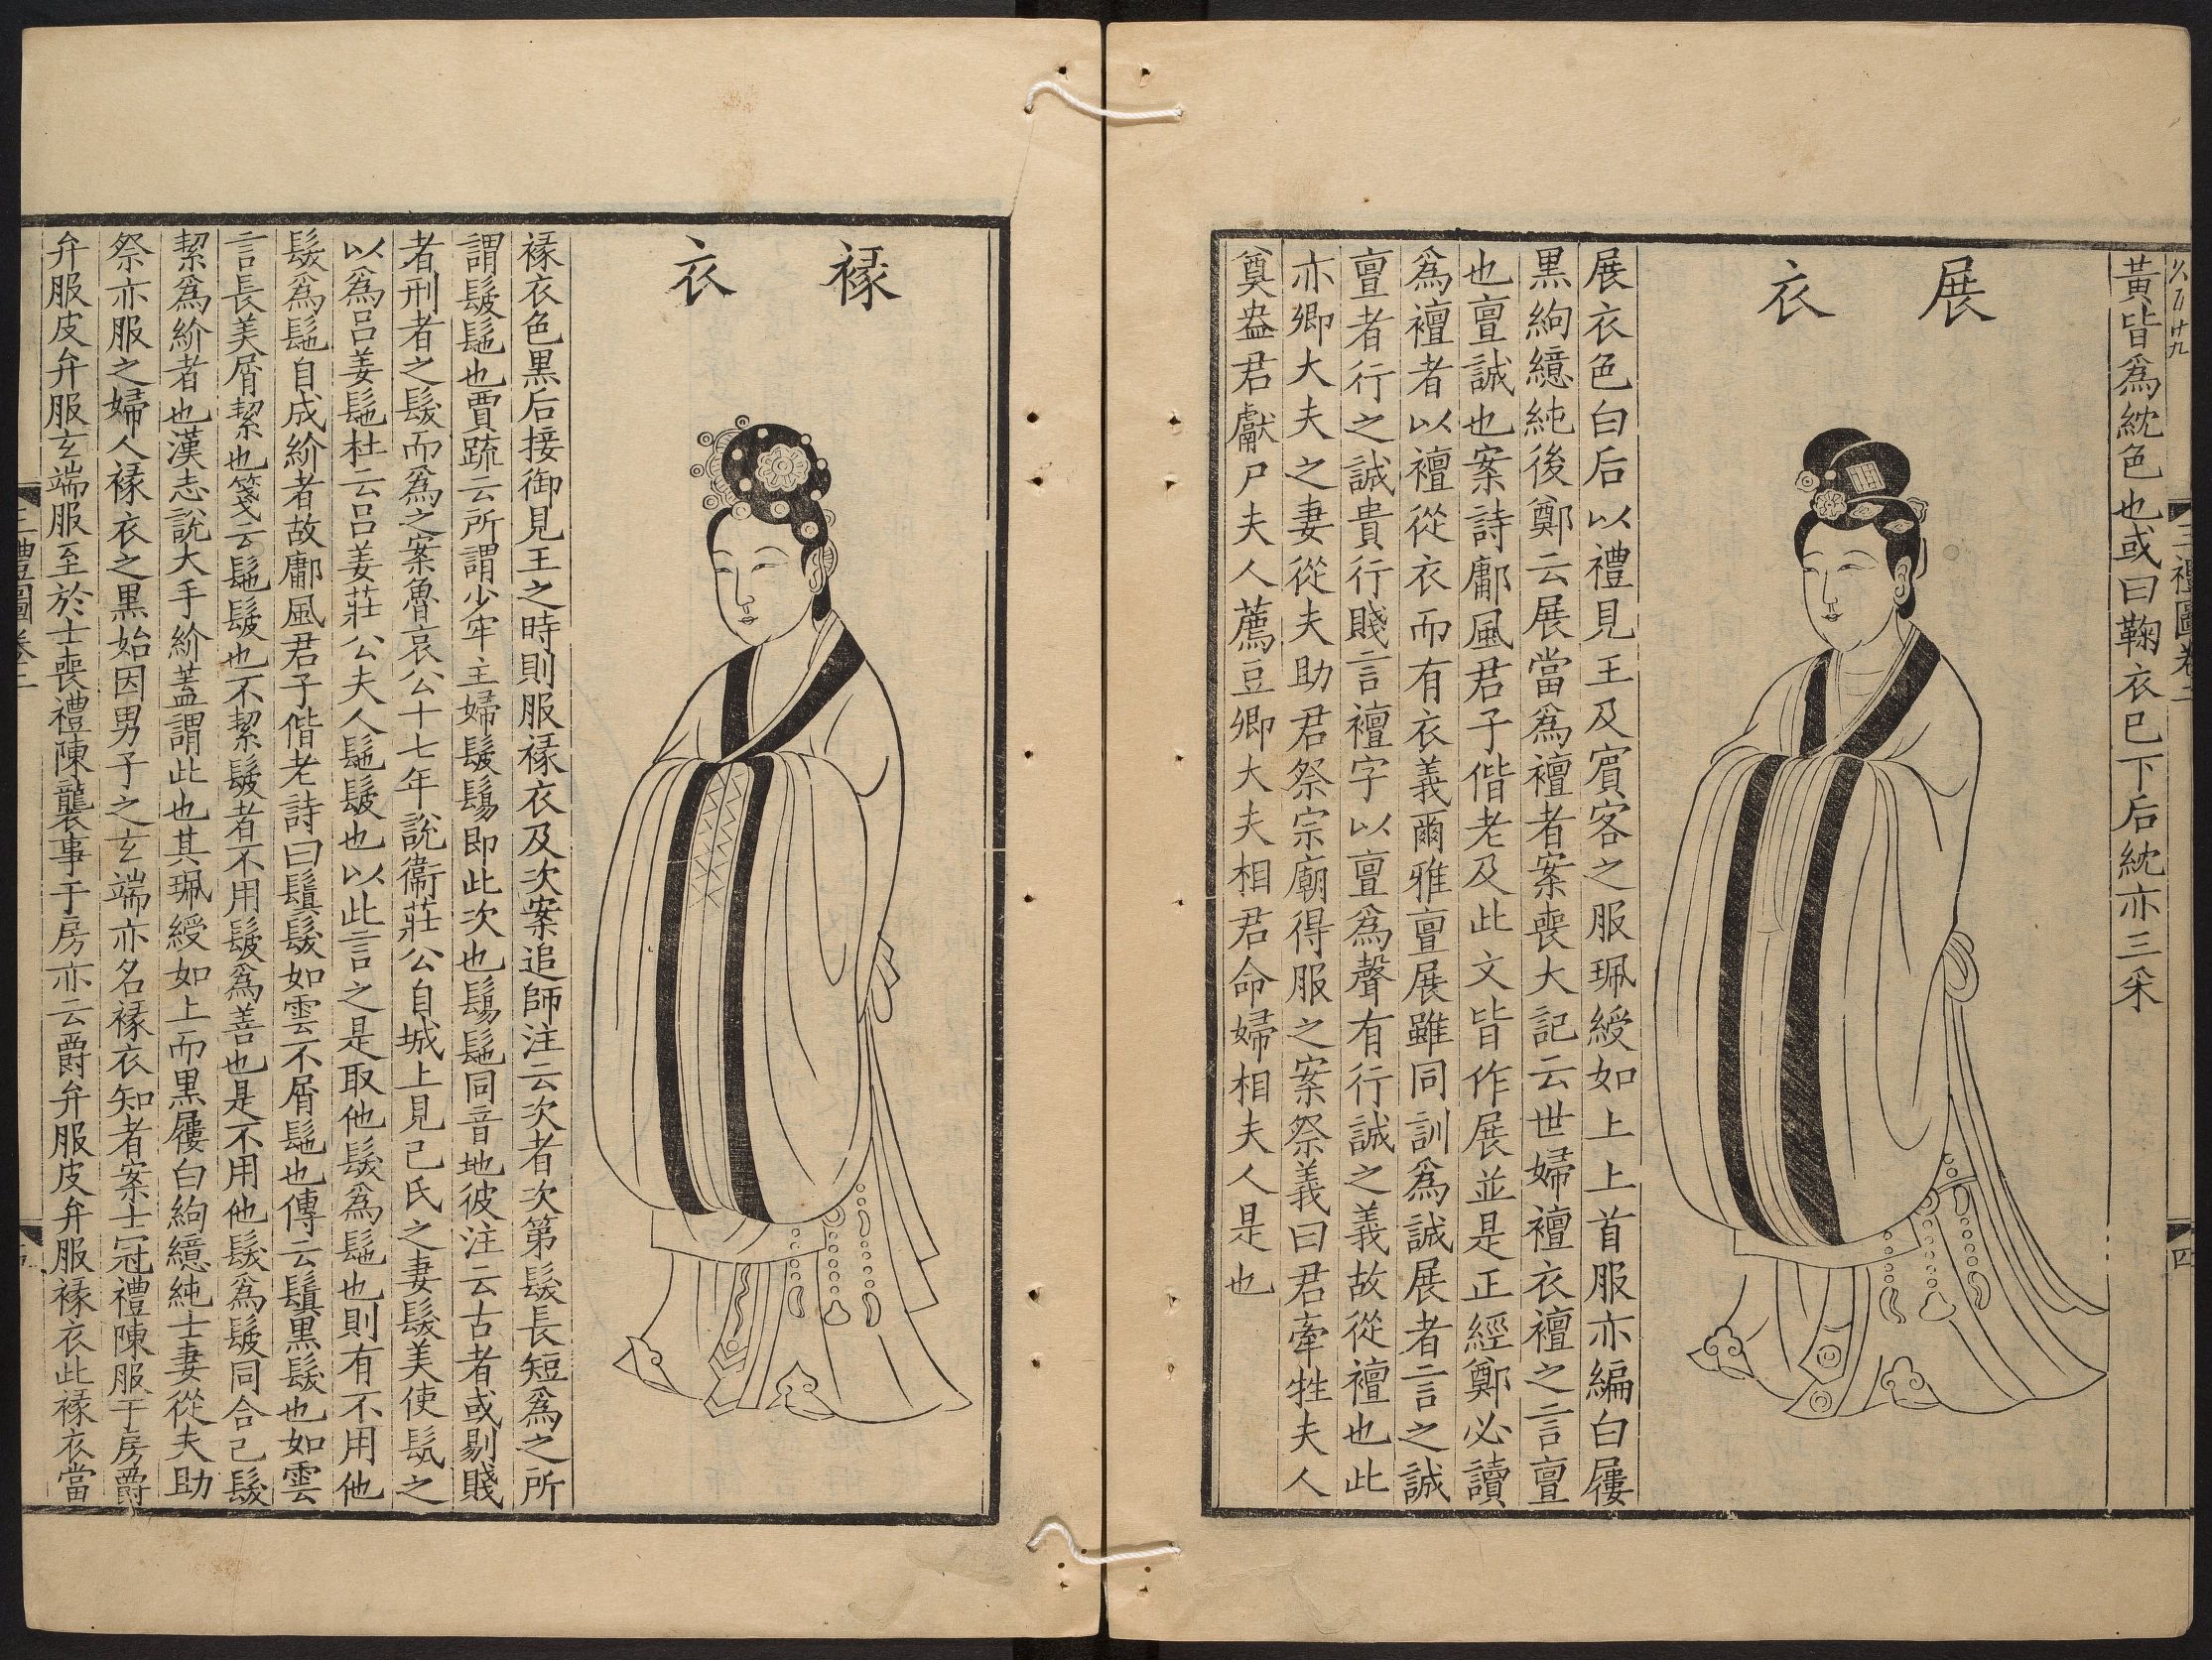 三禮圖卷二
四
黃皆爲紞色也或曰鞠衣巳下后紞亦三采
展衣
展衣色白后以禮見王及賔客之服珮綬如上上首服亦編白屨
黒絇繶純後鄭云展當爲襢者案喪大記云世婦襢衣襢之言亶
也亶誠也案詩鄘風君子偕老及此文皆作展並是正經鄭必讀
爲襢者以襢從衣而有衣義爾雅亶展雖同訓爲誠展者言之誠
亶者行之誠貴行賤言襢字以亶爲聲有行誠之義故從襢也此
亦卿大夫之妻從夫助君祭宗廟得服之案祭義曰君牽牲夫人
奠盎君獻尸夫人薦豆卿大夫相君命婦相夫人是也
褖衣
褖衣色黒后接御見王之時則服褖衣及次案追師注云次者次第髮長短爲之所
謂髲髢也賈疏云所謂少牢主婦髲鬄即此次也鬄髢同音地彼注云古者或剔賤
者刑者之髮而爲之案魯哀公十七年說衞莊公自城上見己氏之妻髮美使髠之
以爲呂姜髢杜云呂姜莊公夫人髢髲也以此言之是取他髮爲髢也則有不用他
髮爲髢自成紒者故鄘風君子偕老詩曰鬒髮如雲不屑髢也傳云鬒黒髮也如雲
言長美屑絜也箋云髢髲也不絜髲者不用髲爲善也是不用他髮爲髲同合己髮
絜爲紒者也漢志說大手紒蓋謂此也其珮綬如上而黒屨白絇繶純士妻從夫助
祭亦服之婦人褖衣之黒始因男子之玄端亦名褖衣知者案士冠禮陳服于房爵
弁服皮弁服玄端服至於士喪禮陳襲事于房亦云爵弁服皮弁服褖衣此褖衣當
三禮圖卷二